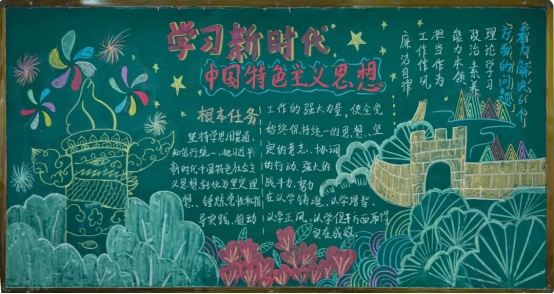 学习新时代
中国特色主义思想
根本任务
坚持学思用贯通、
知信行统一,把习近平
新时代中国特色社会主
义思想转化为坚定理
想、锤炼党性和指
导实践、推动
工作的强大力量,使全党
始终保持统一的思想、坚
定的意志、协调
的行动、强大的
战斗力,努力
在以学铸魂、以学增智、
以学正风、以学促干方面取得
实在成效。
着力解决6个
方面的问题
理论学习
政治素养
能力本领
担当作为
工作作风
廉洁自律